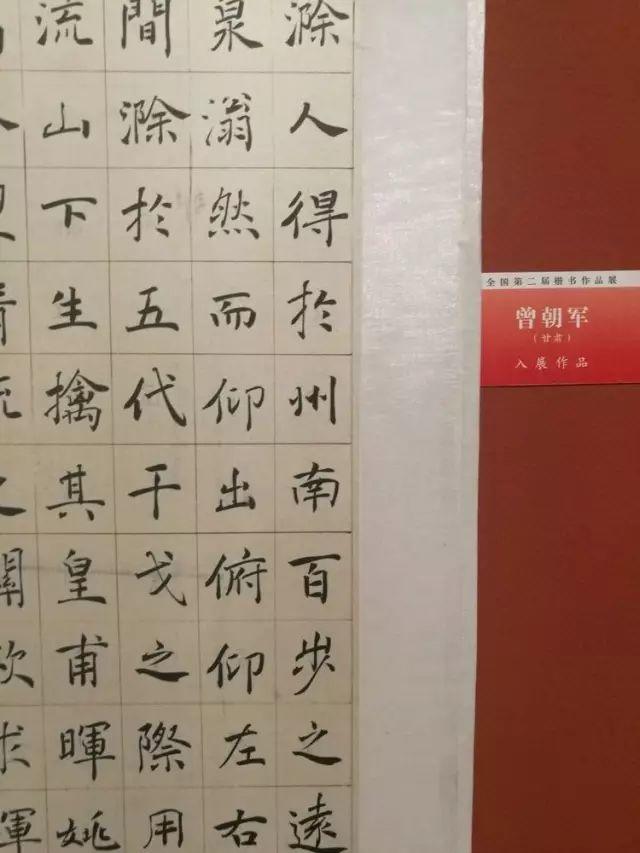 滁人得於州南百步之遠
泉滃然而仰出俯仰左右
間滁於五代干戈之際用
流山下生擒其皇甫暉姚
全国第二届楷书作品展
曾朝军
（甘肃）
入展作品